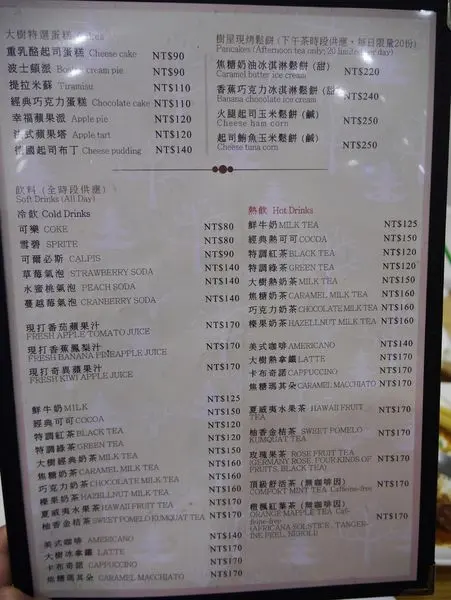 大樹特選蛋糕
重乳酪起司蛋糕 Cheese cake NT$90
波士頓派 Boston cream pie NT$90
提拉米蘇 Tiramisu NT$110
經典巧克力蛋糕 Chocolate cake NT$110
幸福蘋果派 Apple pie NT$120
法式蘋果塔 Apple tart NT$120
德國起司布丁 Cheese pudding NT$140
樹屋現烤鬆餅 (下午茶時段供應，每日限量20份)
Pancakes (Afternoon tea only; 20 limited per day)
焦糖奶油冰淇淋鬆餅 (甜) NT$220
Caramel butter ice cream
香蕉巧克力冰淇淋鬆餅 (甜) NT$240
Banana chocolate ice cream
火腿起司玉米鬆餅 (鹹) NT$250
Cheese ham corn
起司鮪魚玉米鬆餅 (鹹) NT$250
Cheese tuna corn
飲料 (全時段供應)
Soft Drinks (All Day)
冷飲 Cold Drinks
可樂 COKE NT$80
雪碧 SPRITE NT$80
可爾必斯 CALPIS NT$90
草莓氣泡 STRAWBERRY SODA NT$140
水蜜桃氣泡 PEACH SODA NT$140
蔓越莓氣泡 CRANBERRY SODA NT$140
現打番茄蘋果汁 NT$170
FRESH APPLE TOMATO JUICE
現打香蕉鳳梨汁 NT$170
FRESH BANANA PINEAPPLE JUICE
現打奇異蘋果汁 NT$170
FRESH KIWI APPLE JUICE
鮮牛奶 MILK NT$125
經典可可 COCOA NT$150
特調紅茶 BLACK TEA NT$120
特調綠茶 GREEN TEA NT$120
大樹經典奶茶 MILK TEA NT$150
焦糖奶茶 CARAMEL MILK TEA NT$160
巧克力奶茶 CHOCOLATE MILK TEA NT$160
榛果奶茶 HAZELLNUT MILK TEA NT$160
夏威夷水果茶 HAWAII FRUIT TEA NT$170
柚香金桔茶 SWEET POMELO KUMQUAT TEA NT$170
美式咖啡 AMERICANO NT$140
大樹冰拿鐵 LATTE NT$170
卡布奇諾 CAPPUCCINO NT$170
焦糖瑪其朵 CARAMEL MACCHIATO NT$170
熱飲 Hot Drinks
鮮牛奶 MILK TEA NT$125
經典熱可可 COCOA NT$150
特調紅茶 BLACK TEA NT$120
特調綠茶 GREEN TEA NT$120
大樹熱奶茶 MILK TEA NT$150
焦糖奶茶 CARAMEL MILK TEA NT$160
巧克力奶茶 CHOCOLATE MILK TEA NT$160
榛果奶茶 HAZELLNUT MILK TEA NT$160
美式咖啡 AMERICANO NT$140
大樹熱拿鐵 LATTE NT$170
卡布奇諾 CAPPUCCINO NT$170
焦糖瑪其朵 CARAMEL MACCHIATO NT$170
夏威夷水果茶 HAWAII FRUIT TEA NT$170
柚香金桔茶 SWEET POMELO KUMQUAT TEA NT$170
玫瑰果茶 ROSE FRUIT TEA NT$170
(GERMANY ROSE, FOUR KINDS OF FRUITS, BLACK TEA)
頂級舒活茶 (無咖啡因) NT$170
COMFORT MINT TEA Caffeine-free
橙楓紅葉茶 (無咖啡因) NT$170
ORANGE MAPLE TEA Caffeine-free
(AFRICANA SOLSTICE, TANGERINE PEEL,